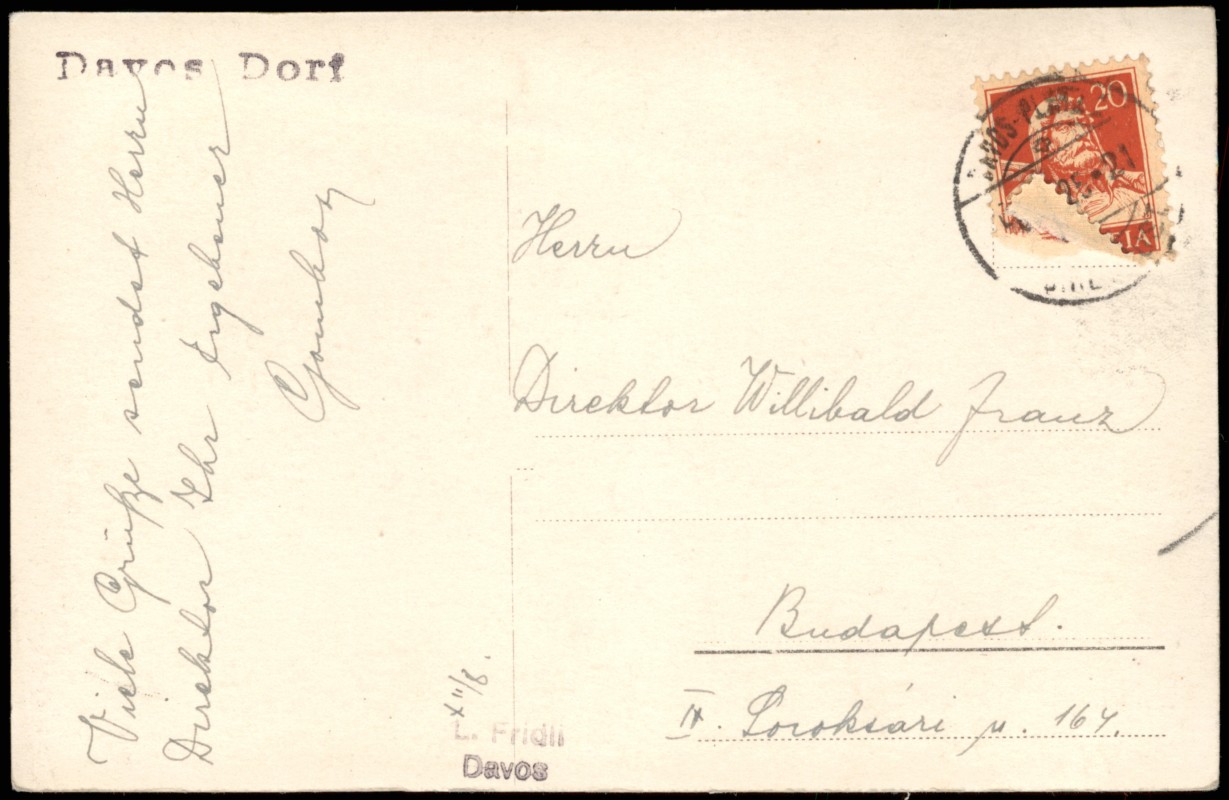 Davos Dorf
Viele Grüße sendet Herrn
Direktor Ihr Ergebener
20
DAVOS-PLATZ
21
IA
Herrn
Direktor Willibald Franz
Budapest.
IX. Soroksári u. 164.
L. Fridli
Davos